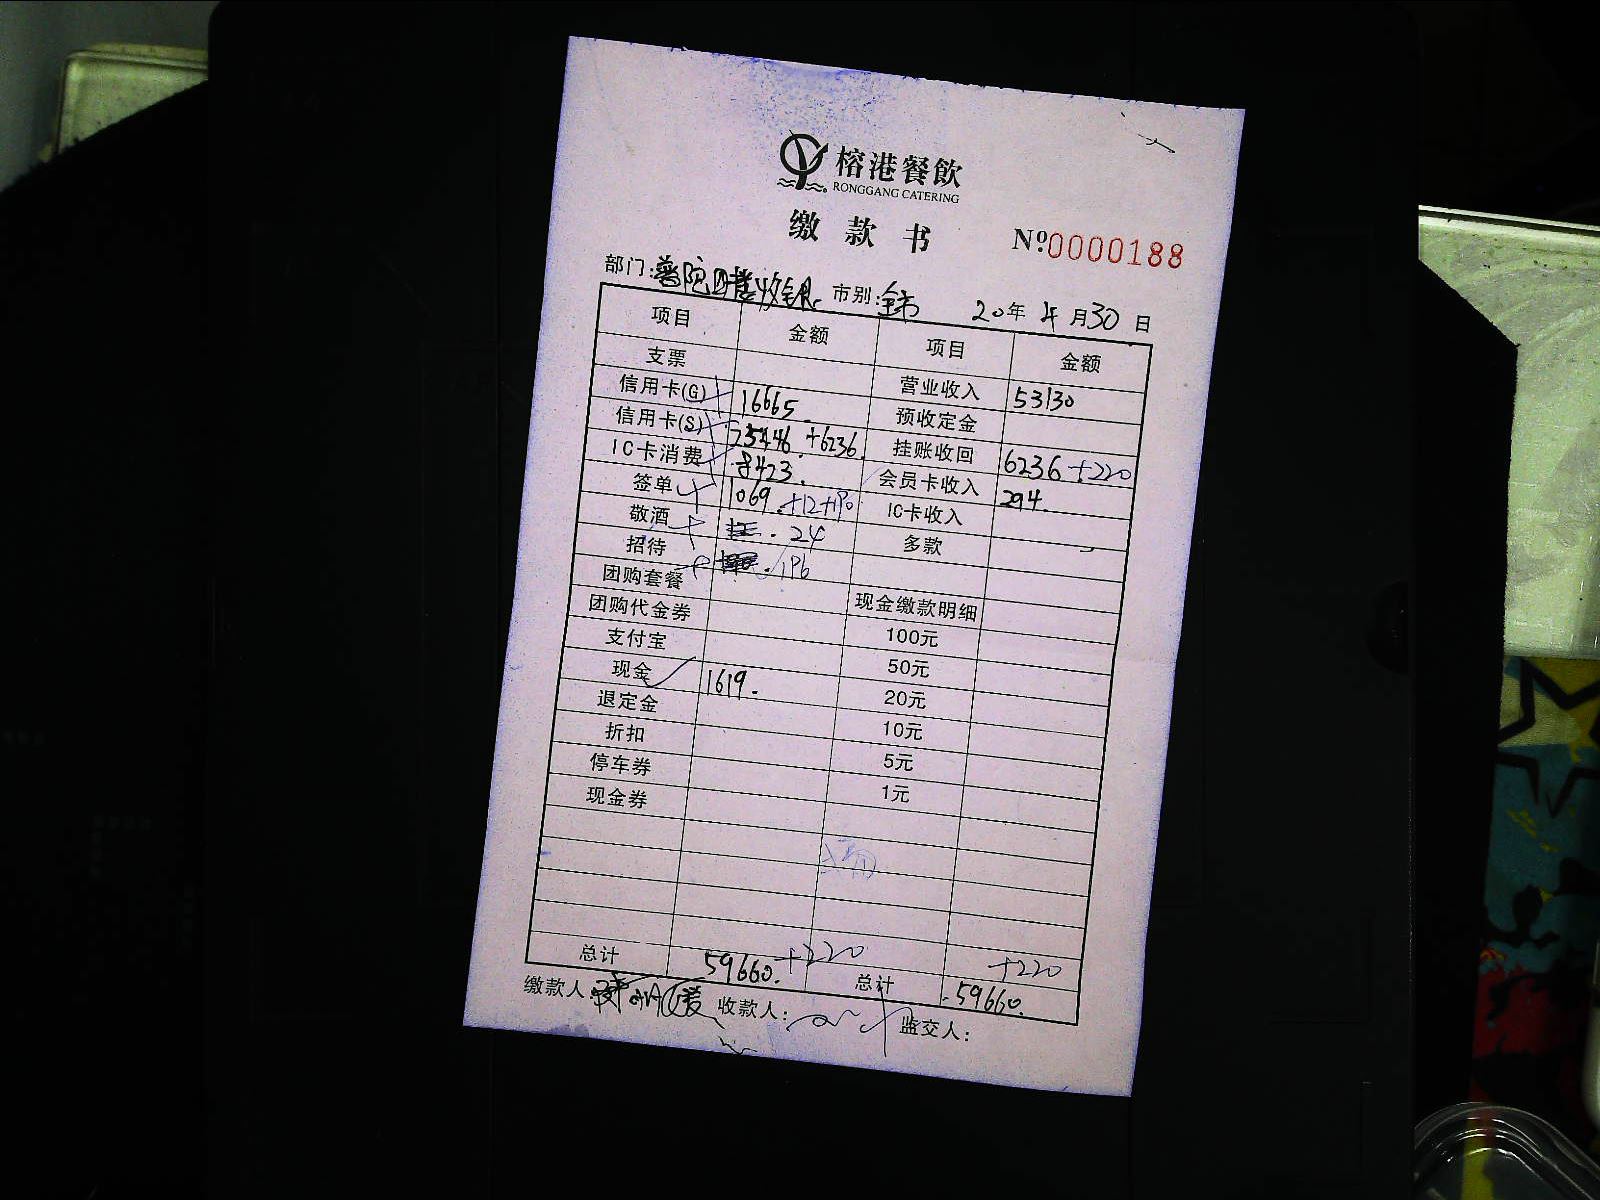 榕港餐飲
RONGGANG CATERING
缴款书 Nº0000188
部门: 四楼收银 市别: 全市 20年 4月30日
项目 金额 项目 金额
支票 营业收入 53130
信用卡(G) 16665 预收定金
信用卡(S) 25446 +6236 挂账收回 6236 +220
IC卡消费 8423 会员卡收入 294
签单 1069 +12+190 IC卡收入
敬酒 24 多款
招待 196
团购套餐 现金缴款明细
团购代金券 100元
支付宝 50元
现金 1619 20元
退定金 10元
折扣 5元
停车券 1元
现金券
总计 59660 +220 总计 59660 +220
缴款人: 收款人: 监交人: